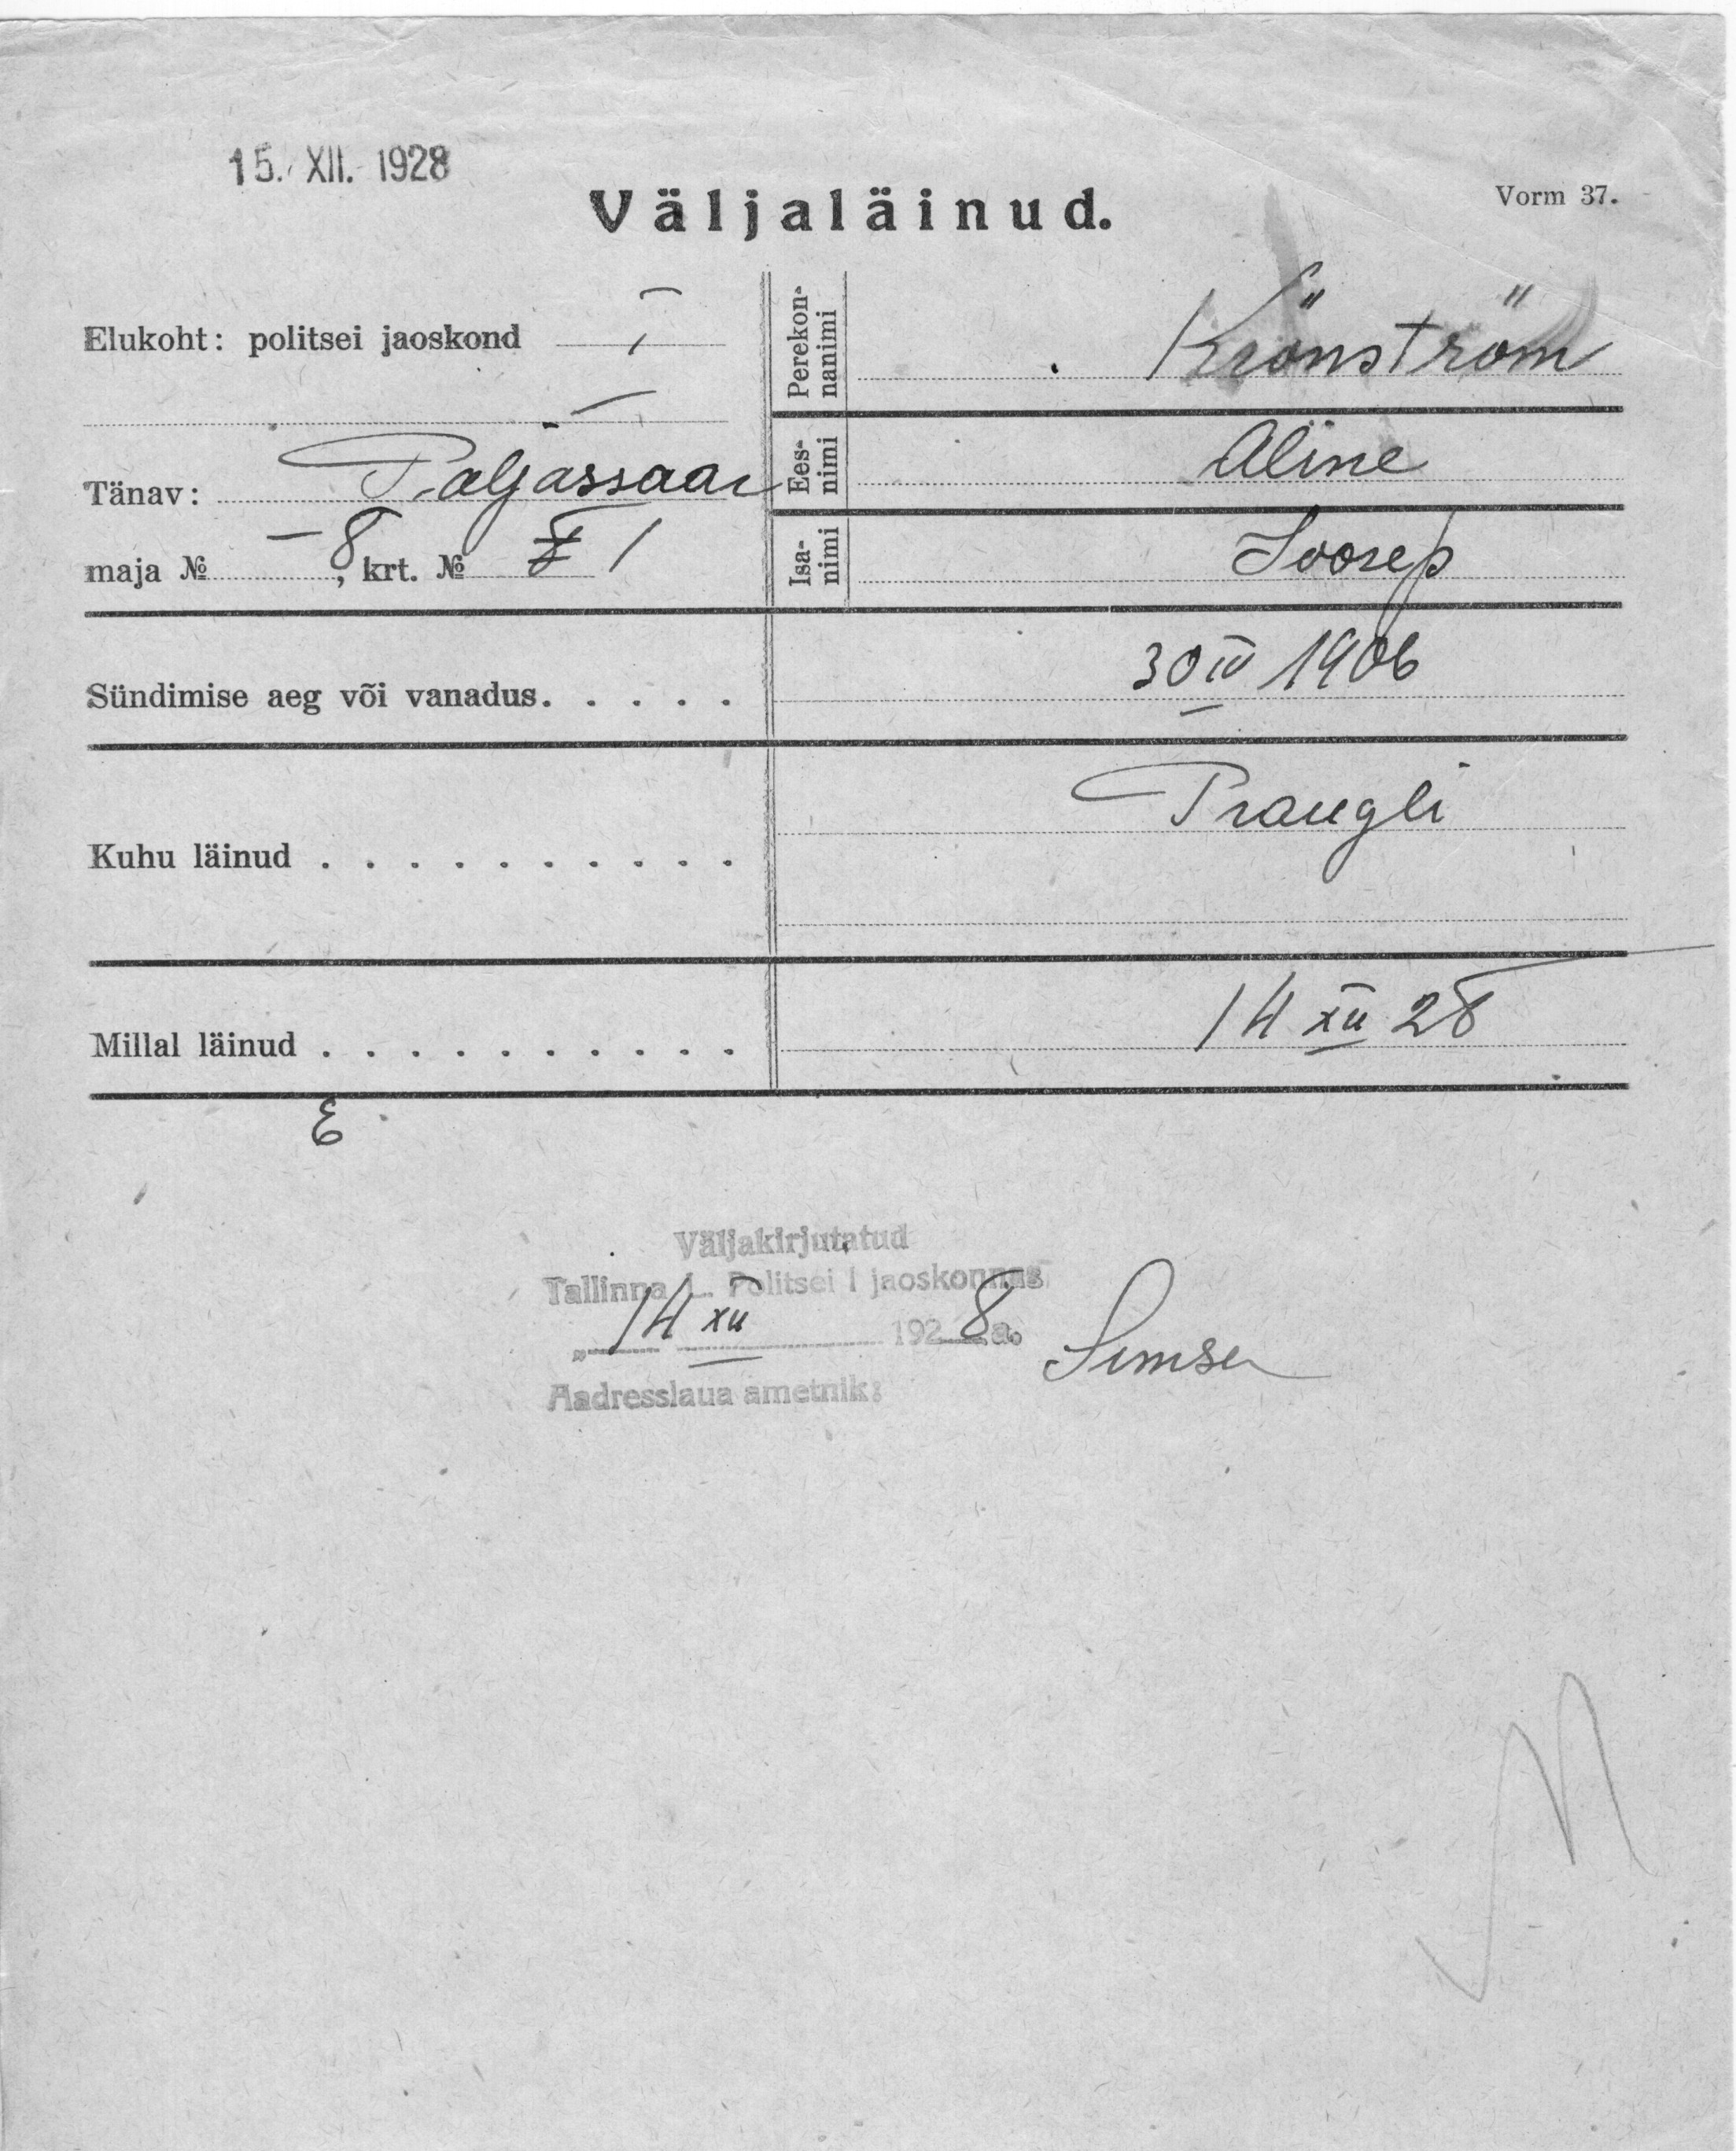 15. XII. 1928
Väljaläinud.
Vorm 37.
Elukoht: politsei jaoskond I
Tänav: Paljassaar
maja № 8, krt. № 1
Perekonnanimi Krönström
Eesnimi Aline
Isanimi Joosep
Sündimise aeg või vanadus. . . . . 30 III 1906
Kuhu läinud . . . . . . . . . . Prangli
Millal läinud . . . . . . . . . . 14 XII 28
Väljakirjutatud
Tallinna L. Politsei I jaoskonnas
"14" XII 1928 a.
Aadresslaua ametnik: